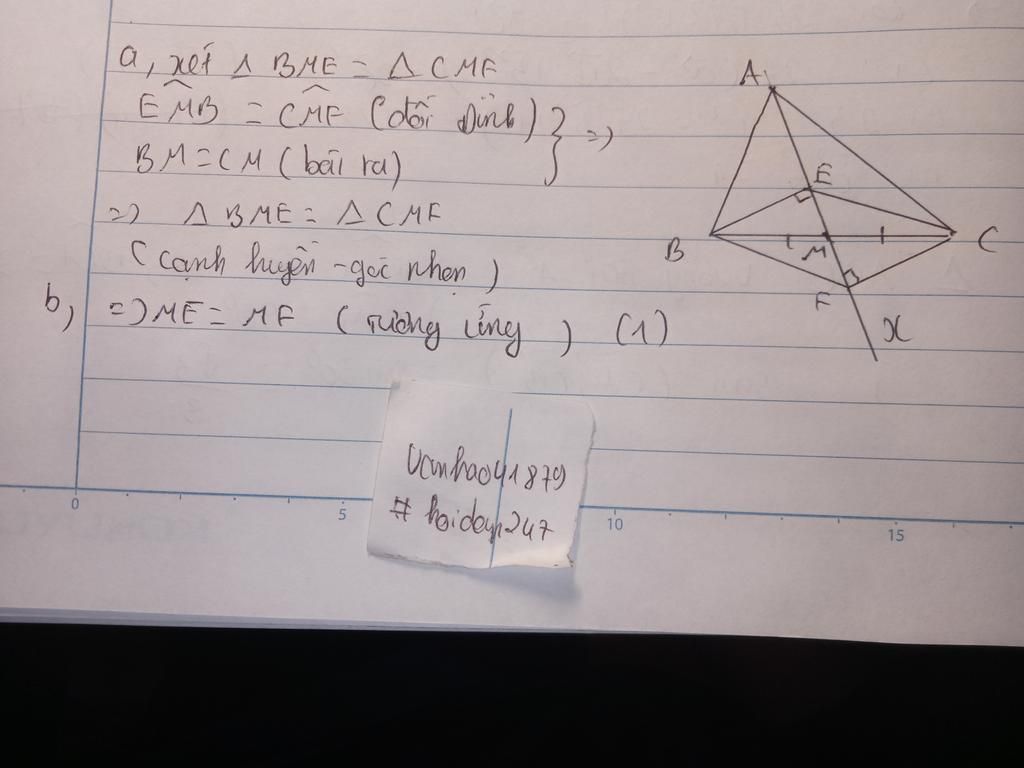 a, xét Δ BME = Δ CMF
EMB = CMF (đối đỉnh) } =>
BM = CM (bài ra)
=> Δ BME = Δ CMF
(cạnh huyền - góc nhọn)
b, => ME = MF (tương ứng) (1)
A
E
B
M
C
F
x
vanhao041879
# hoidap247
0
5
10
15